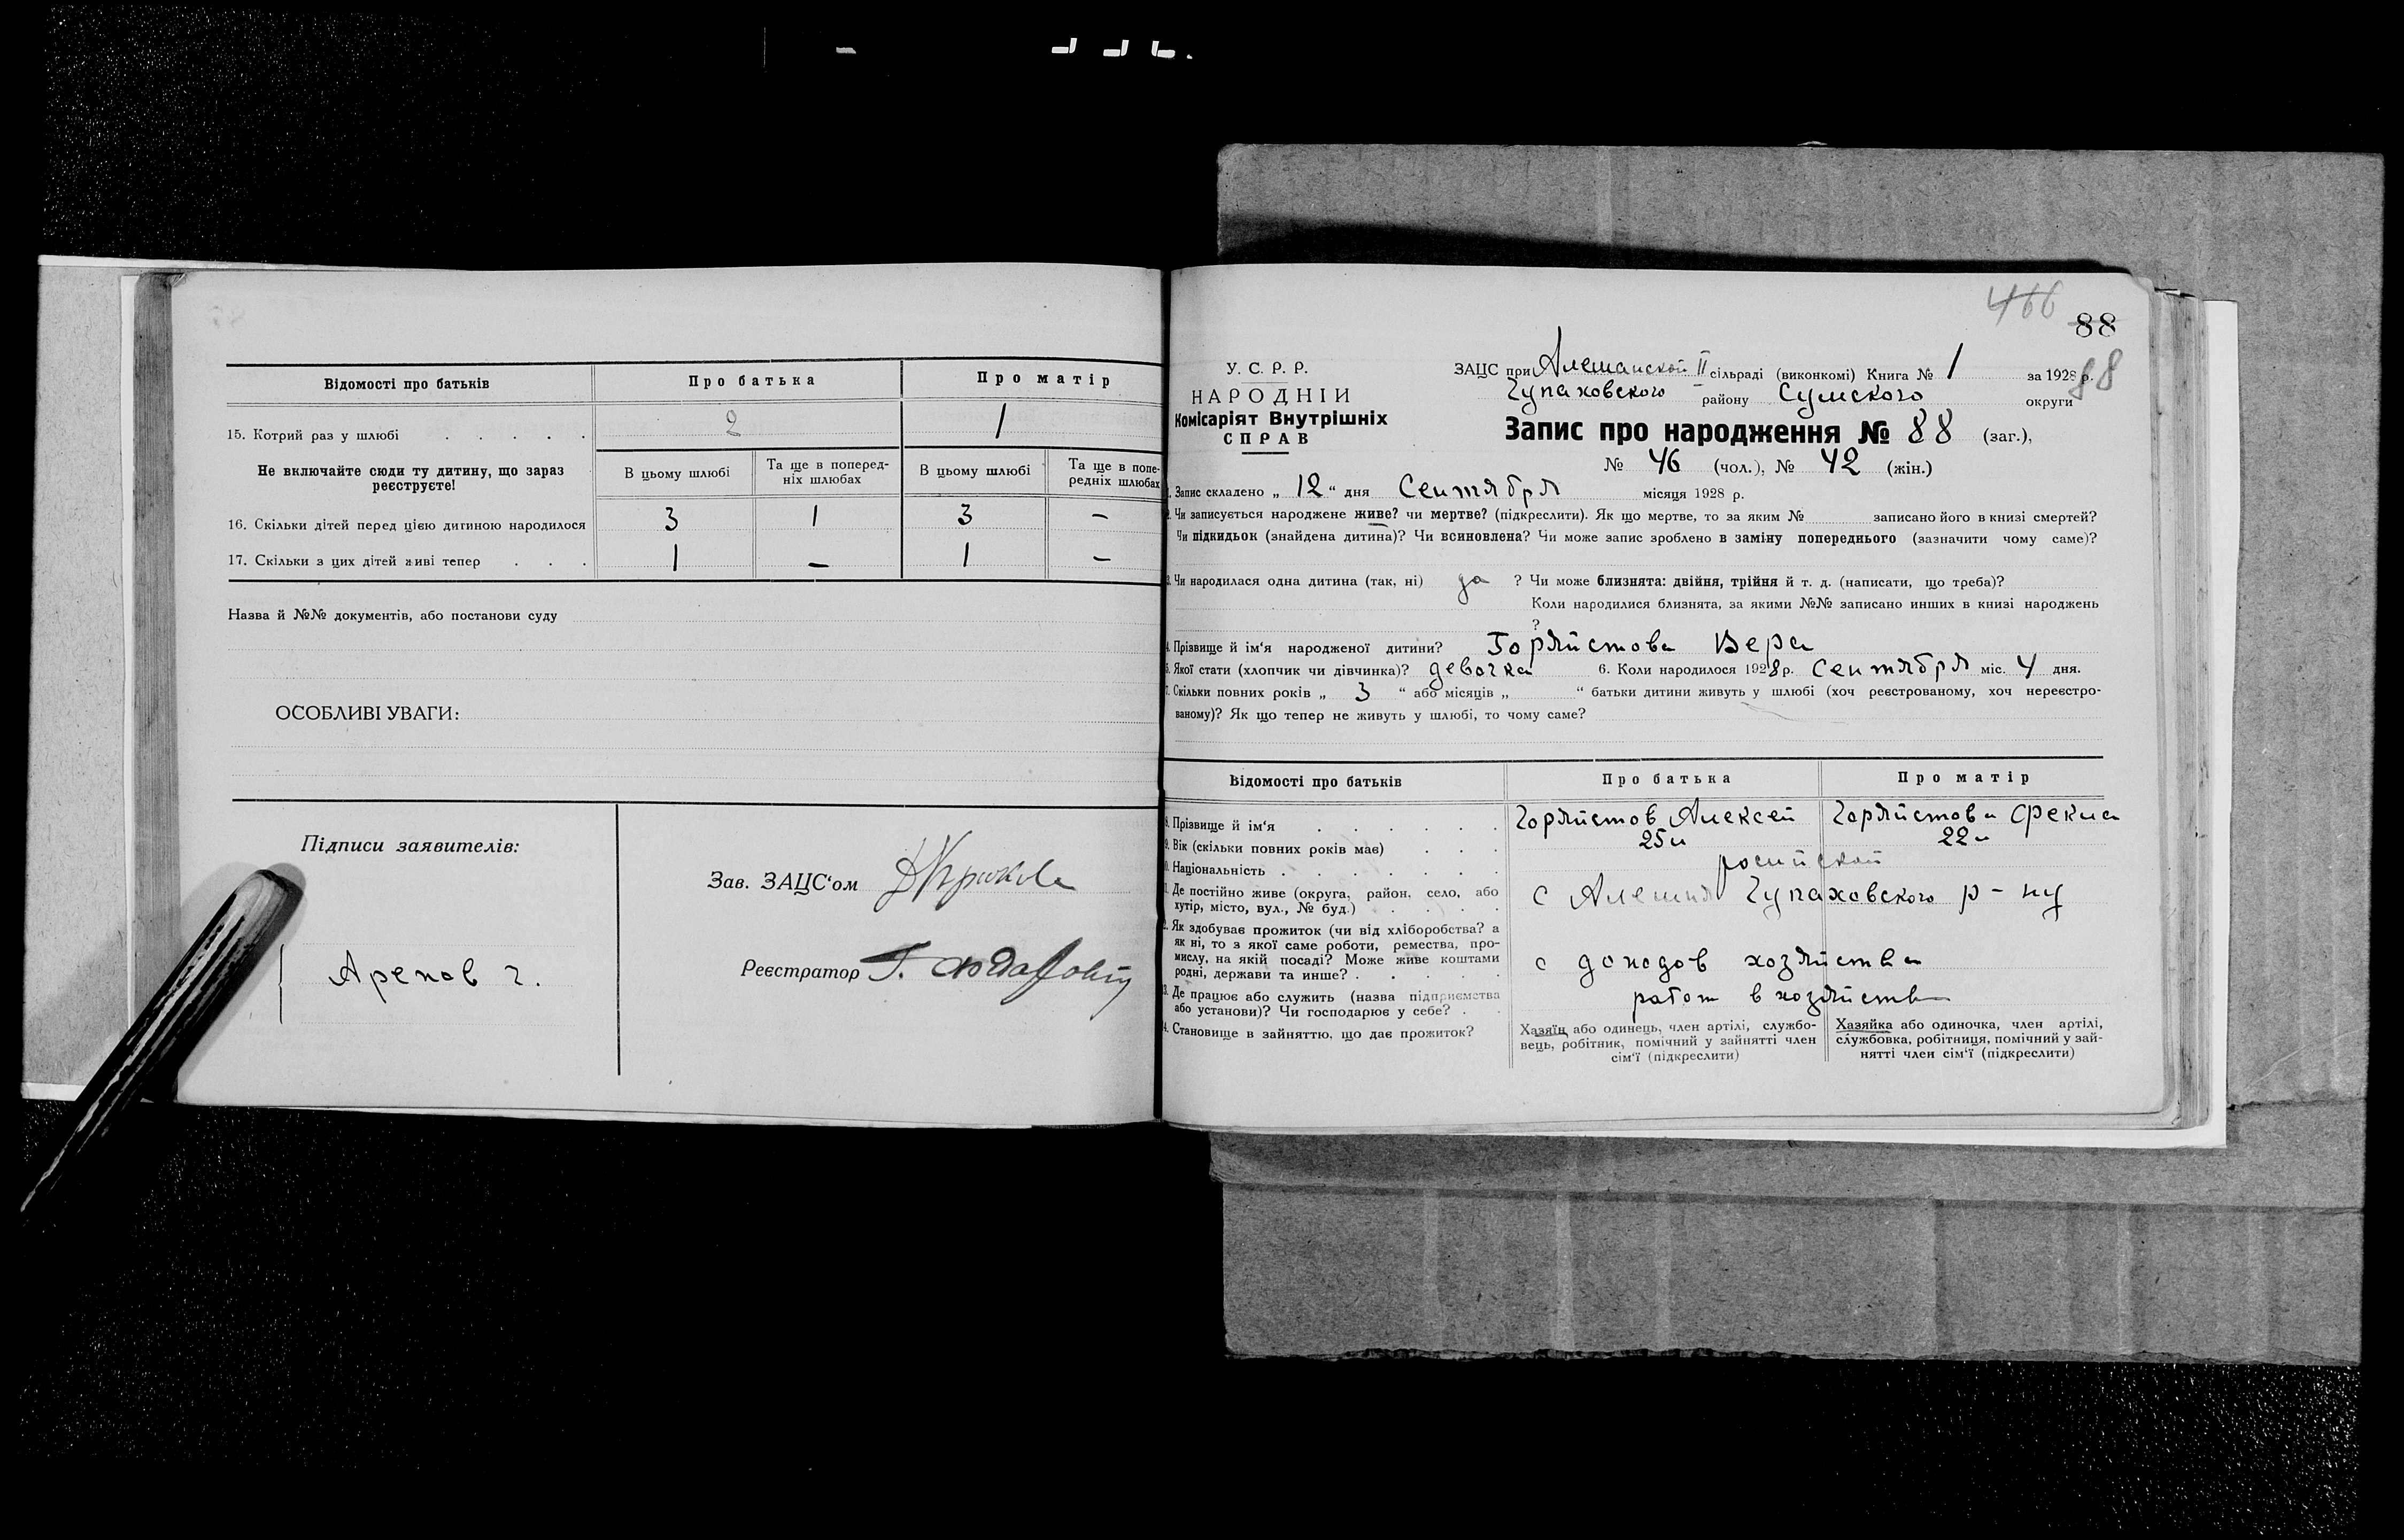 Відомості про батьків Про батька Про матір
15. Котрий раз у шлюбі 2 1
Не включайте сюди ту дитину, що зараз реєструєте!
В цьому шлюбі Та ще в попередніх шлюбах В цьому шлюбі Та ще в попередніх шлюбах
16. Скільки дітей перед цією дитиною народилося 3 1 3 —
17. Скільки з цих дітей живі тепер 1 — 1 —
Назва й №№ документів, або постанови суду
ОСОБЛИВІ УВАГИ:
Підписи заявителів:
Зав. ЗАЦС'ом
Реєстратор
Арепов г.
466
88
88
У. С. Р. Р.
НАРОДНІЙ
Комісаріят Внутрішніх
СПРАВ
ЗАЦС при Алешанской II сільраді (виконкомі) Книга № 1 за 1928 р.
Чупаховского району Сумского округи
Запис про народження № 88 (заг.),
№ 46 (чол.), № 42 (жін.)
1. Запис складено „ 12 “ дня Сентября місяця 1928 р.
2. Чи записується народжене живе? чи мертве? (підкреслити). Як що мертве, то за яким № записано його в книзі смертей?
Чи підкидьок (знайдена дитина)? Чи всиновлена? Чи може запис зроблено в заміну попереднього (зазначити чому саме)?
3. Чи народилася одна дитина (так, ні) да ? Чи може близнята: двійня, трійня й т. д. (написати, що треба)?
Коли народилися близнята, за якими №№ записано инших в книзі народжень
?
4. Прізвище й ім'я народженої дитини? Горяйстова Вера
5. Якої стати (хлопчик чи дівчинка)? девочка 6. Коли народилося 1928 р. Сентября міс. 4 дня.
7. Скільки повних років „ 3 “ або місяців „ “ батьки дитини живуть у шлюбі (хоч реєстрованому, хоч нереєстро-
ваному)? Як що тепер не живуть у шлюбі, то чому саме?
Відомості про батьків Про батька Про матір
8. Прізвище й ім'я Горяйстов Алексей Горяйстова Фекла
9. Вік (скільки повних років має) 25 22
10. Національність росийской
11. Де постійно живе (округа, район, село, або
хутір, місто, вул., № буд.) с Алешня Чупаховского р-ну
12. Як здобуває прожиток (чи від хліборобства? а
як ні, то з якої саме роботи, ремества, про-
мислу, на якій посаді? Може живе коштами
родні, держави та инше? с доходов хозяйства
13. Де працює або служить (назва підприємства
або установи)? Чи господарює у себе? работ в хозяйстве
14. Становище в зайняттю, що дає прожиток?
Хазяїн або одинець, член артілі, службо-
вець, робітник, помічний у зайнятті член
сім'ї (підкреслити)
Хазяйка або одиночка, член артілі,
службовка, робітниця, помічний у зай-
нятті член сім'ї (підкреслити)